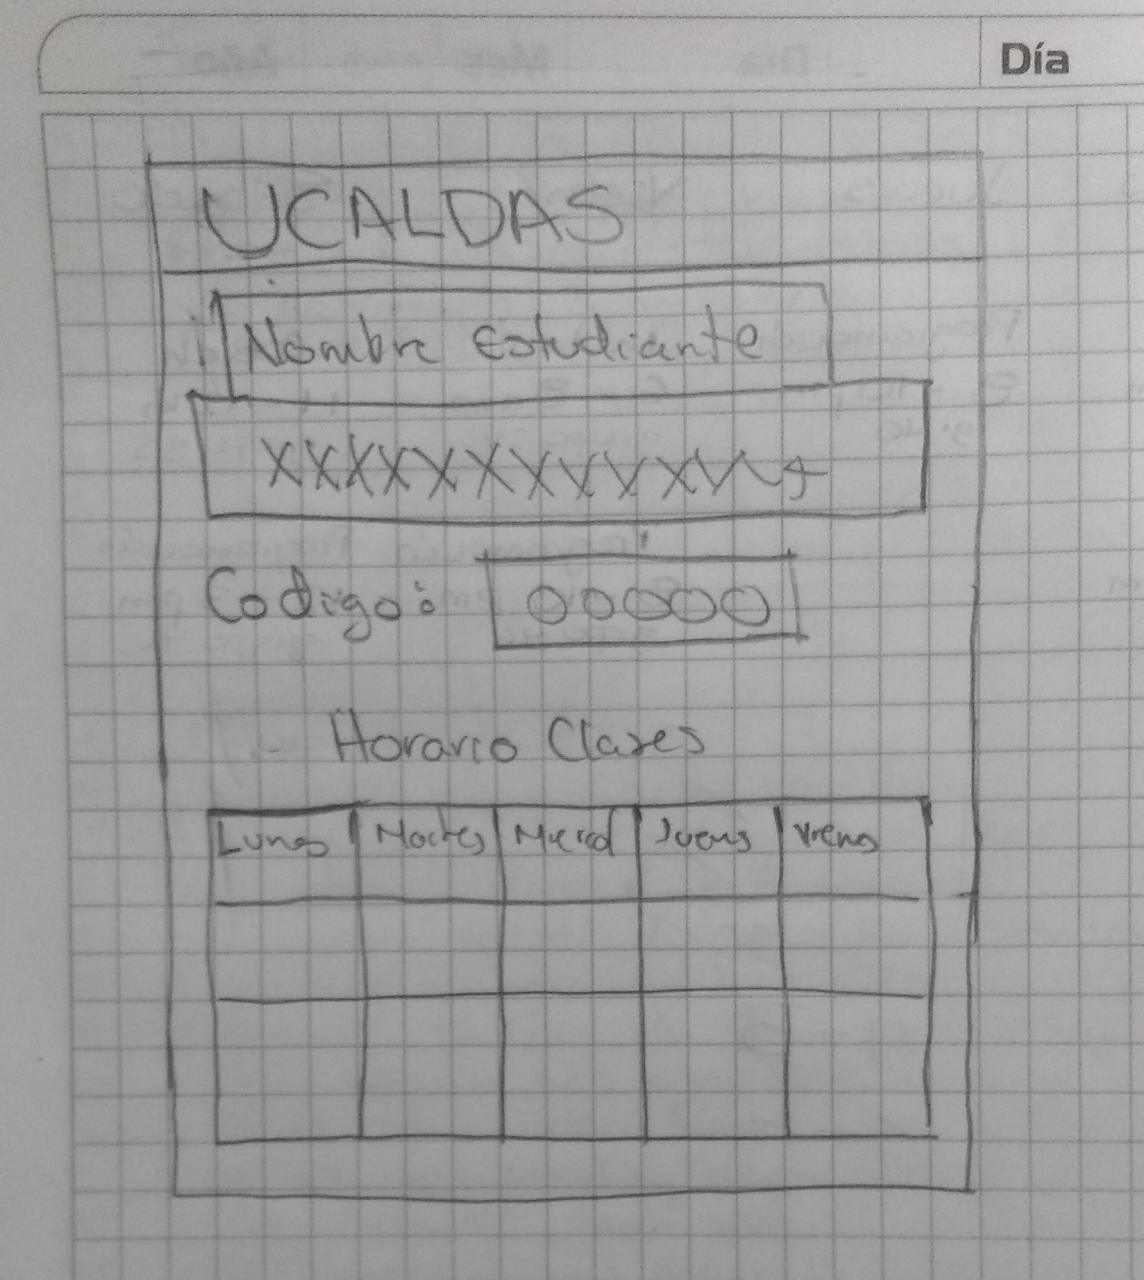 Día
UCALDAS
Nombre Estudiante
XXXXXXXXXXXXX
Codigo: 00000
Horario Clases
Lunes Martes Miercol Jueves Viernes